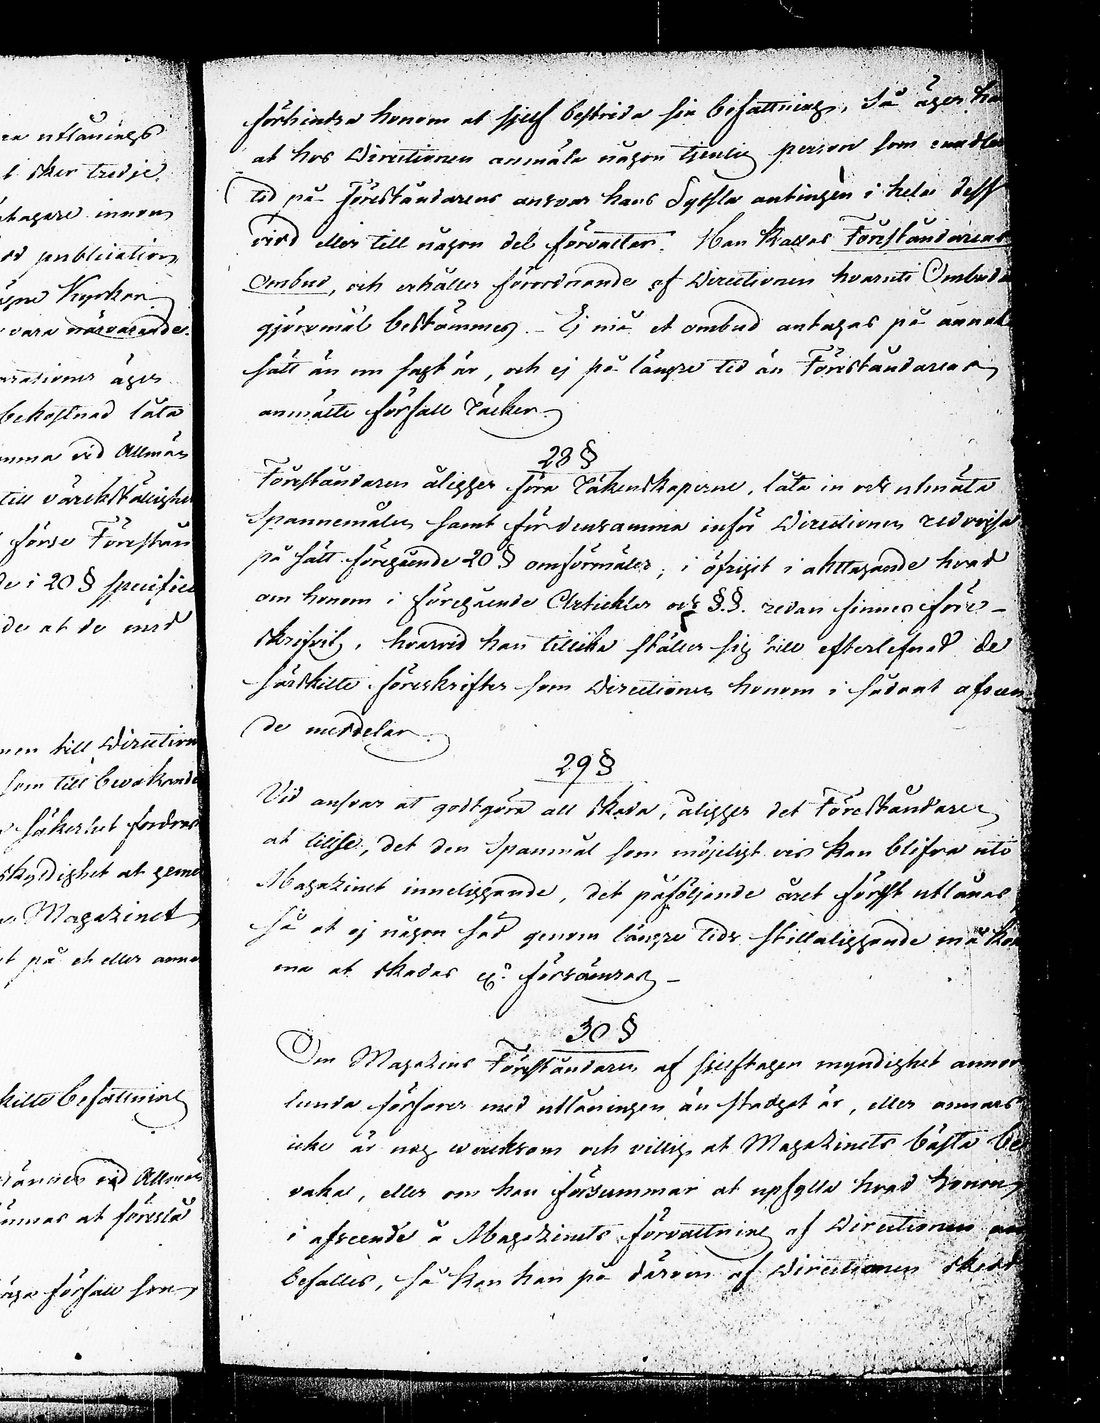 ra utlånings
t sker tredje
ntagare innom
ed publication
Kyrkan
vara närvarande.
rationer äger
bekostnad låta
mma vid Allmän
till värckställighet
förse Förestån
de i 20 § specific
de at de med
nen till Direction
som till bevakande
säkerhet fordras
skyldighet at geno
Magazinet
t på et eller anna
skilte befattning
vid Allmän
ämnas at föreslå
förfall som
förhindra honom at sjelf bestrida sin befattning, Så äger ha
at hos Directionen anmäla någon tjenlig person som emedler
tid på Föreståndarens ansvar hans Syssla antingen i hela dess
vidd eller till någon del förvaltar. Han kallas Föreståndarens
Ombud, och erhåller förordnande af Directionen hvaruti Ombuds
gjöromål bestämmes. – Ej må et ombud antagas på annat
sätt än nu sagt är, och ej på längre tid än Föreståndarens
anmälte förfall räcker.
28 §
Föreståndaren åligger föra Räkenskaperne, låta in och utmäta
Spannemålen samt för densamma inför Directionen redovisa
på sätt föregående 20 § omförmäler; i öfrigt i akttagande hvad
om honom i föregående Artickler och §.§. redan finnes före-
skrifvit, hvarvid han tillika ställer sig till efterlefnad de
särskilte föreskrifter som Directionen honom i sådant afseen
de meddelar.
29 §
Vid ansvar at godtgöra all skada, åligger det Föreståndaren
at tillse, det den Spanmål som möjeligt vis kan blifva uti
Magazinet inneliggande, det påföljande året först utlånas,
så at ej någon säd genom längre tids stillaliggande må kom
ma at skadas el. försämras –
30 §
Om Magazins Föreståndaren af sjelftagen myndighet annor
lunda förfarer med utlåningen än stadgat är, eller annars
icke är nog verksam och villig at Magazinets bästa be
vaka, eller om han försummar at upfylla hvad honom
i afseende å Magazinets förvaltning af Directionen an
befalles, så kan han på därom af Directionen skedd